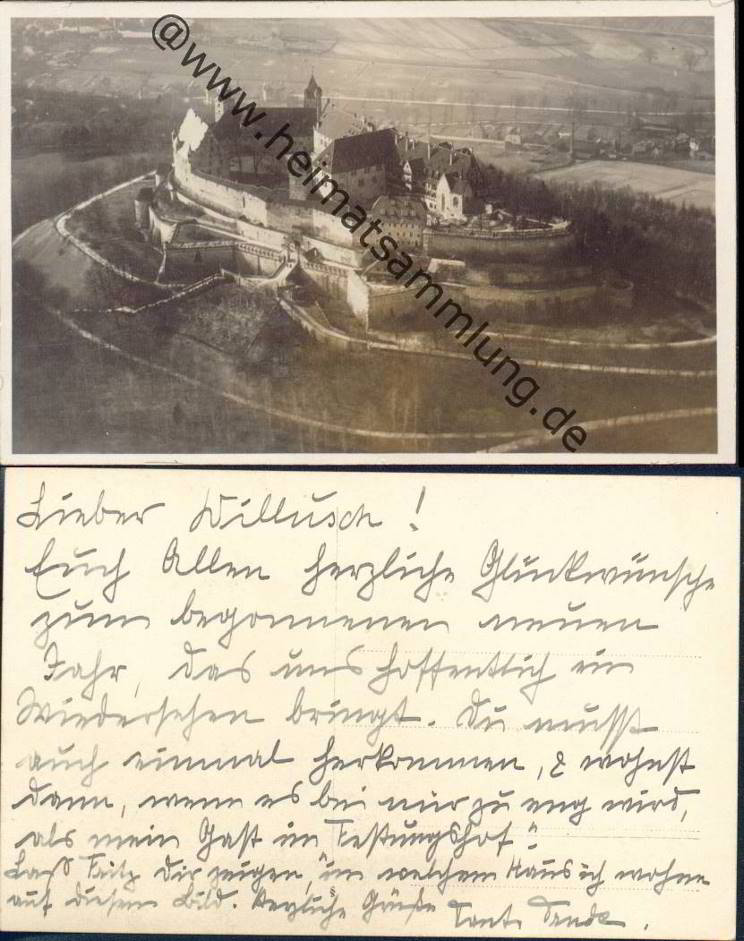 @www.heimatsammlung.de
Lieber Willusch!
Euch Allen herzliche Glückwünsche
zum begonnenen neuen
Jahr, das uns hoffentlich ein
Wiedersehen bringt. Du musst
auch einmal herkommen, & wohnst
dann, wenn es bei mir zu eng wird,
als mein Gast im "Festungshof"!
Lass Fritz dir zeigen, in welchem Haus ich wohne
auf diesem Bild. Herzliche Grüße Tante